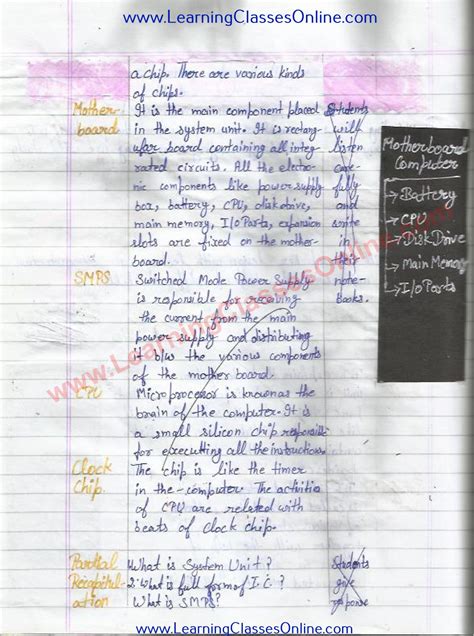 www.LearningClassesOnline.com
a chip. There are various kinds
of chips.
Mother-
board
It is the main component placed
in the system unit. It is rectang
ular board containing all integ
rated circuits. All the electro-
nic components like power supply
box, battery, CPU, disk drive,
main memory, I/O Ports, expansion
slots are fixed on the mother-
board.
Students
will
listen
care-
fully
and
write
in
their
note-
books.
Motherboard
Computer
→ Battery
→ CPU
→ Disk Drive
→ Main Memory
→ I/o Ports
SMPS
Switched Mode Power Supply
is responsible for receiving
the current from the main
power supply and distributing
it plus the various components
of the mother board.
CPU
Microprocessor is known as the
brain of the computer. It is
a small silicon chip responsible
for executting all the instructions.
Clock
Chip.
The chip is like the timer
in the computer. The activities
of CPU are related with
beats of clock chip.
Partial
Recapitul-
ation
What is System Unit?
2. What is full form of I.C.?
What is SMPS?
Students
give
response
www.LearningClassesOnline.com
www.LearningClassesOnline.com